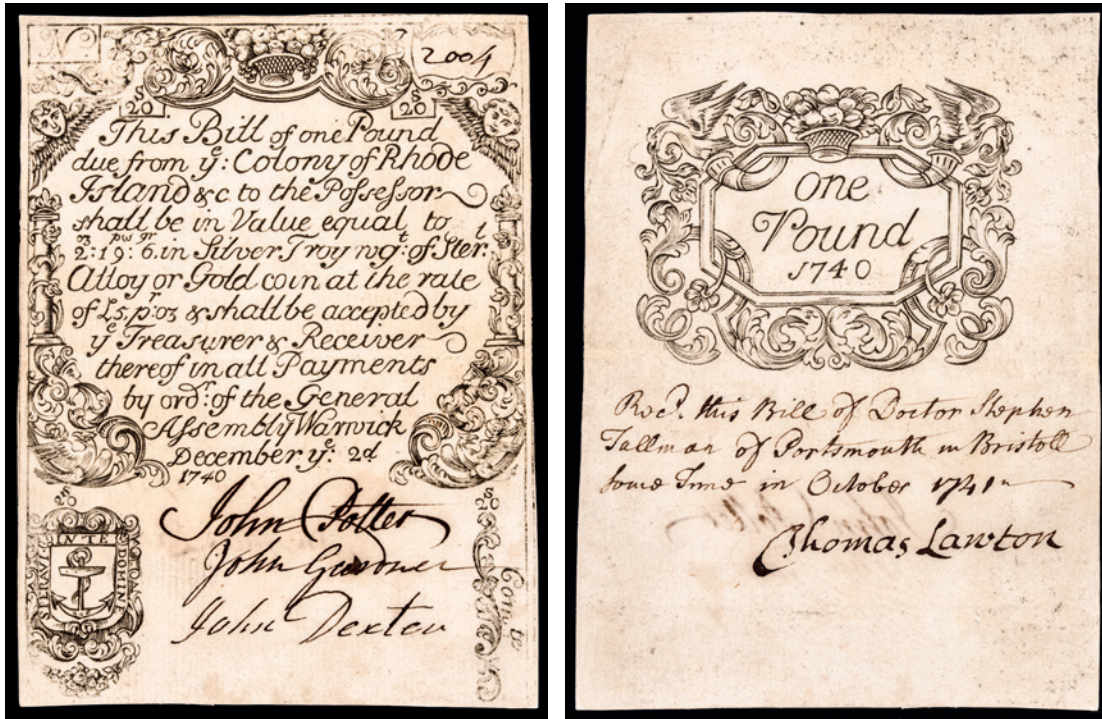 No
2004
S
20
S
20
This Bill of one Pound
due from yᵉ: Colony of Rhode
Island &c to the Poſseſsor
shall be in Value equal to
oz pwt gr
2:19:6. in Silver Troy wgᵗ: of Sterˡ:
Alloy or Gold coin at the rate
of £5. pʳ oz & shall be accepted by
yᵉ Treasurer & Receiver
thereof in all Payments
by ordʳ: of the General
Aſsembly Warwick
December yᵉ: 2d
1740
S
20
S
20
John Potter
John Gardner
John Dexter
IN TE
SPERAVI
DOMINE
one
Pound
1740
Recᵈ. this Bill of Doctor Stephen
Tallman of Portsmouth in Bristoll
some Time in October 1741
Thomas Lawton